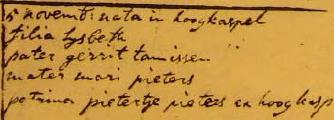 5 novemb: nata in hoogkarspel
filia lysbeth
pater gerrit tamissen
mater mari pieters
petrina pietertje pieters ex hoogkasp